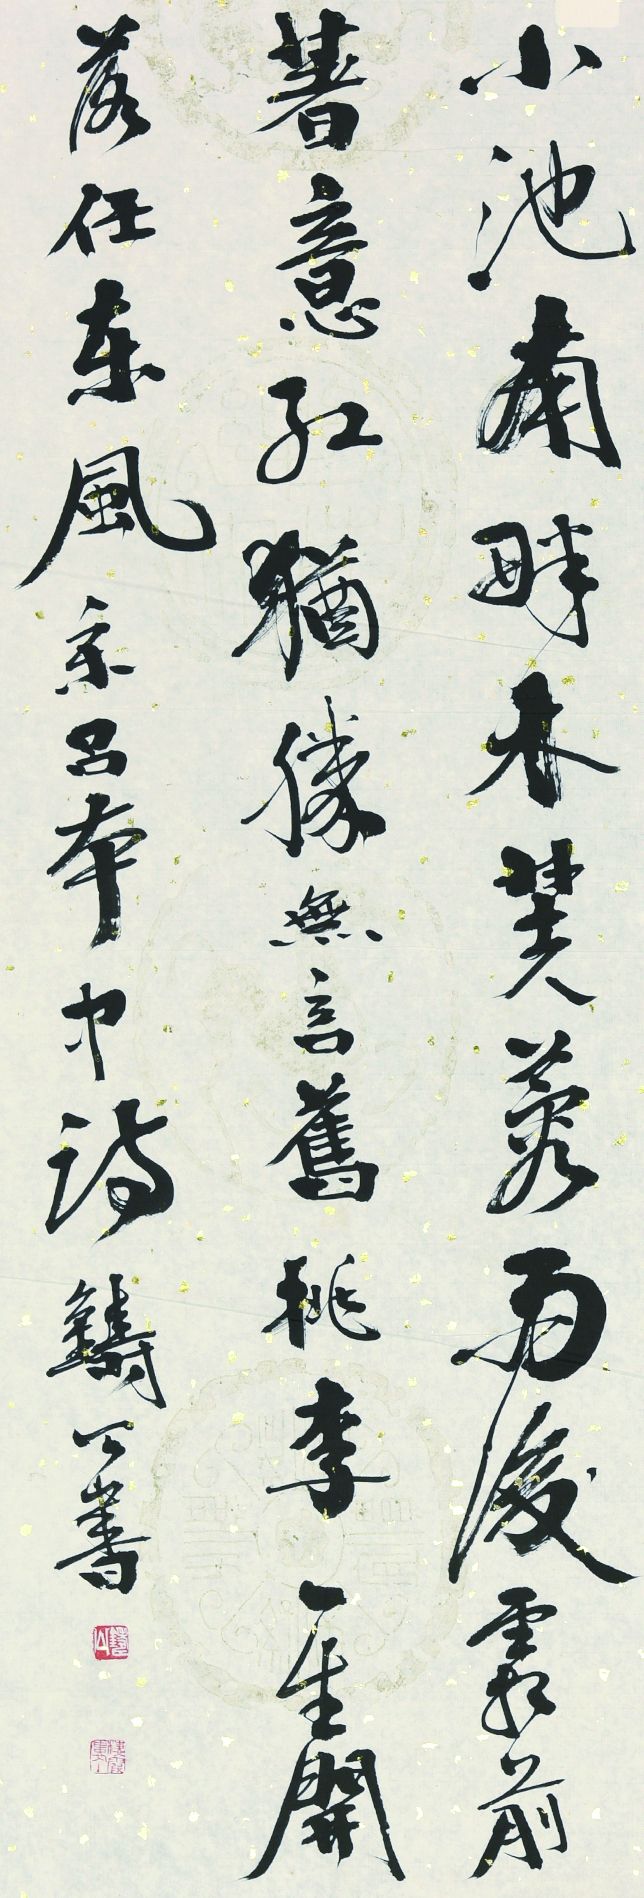 小池南畔木芙蓉雨後霜前
著意紅猶勝無言舊桃李一生開
落任東風宋呂本中詩鑄公書